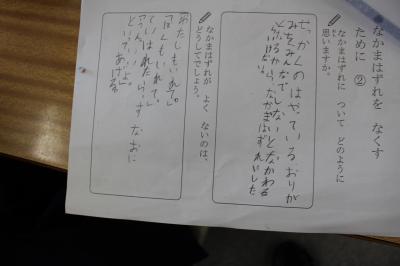 なかまはずれを なくす
ために ②
なかまはずれに ついて どのように
思いますか。
せっかくのはやっている おりが
みをみんなでしないとなかわる
なかまはずれいした
なかまはずれが よく ないのは、
どうしてでしょう。
わたしもいれて。
「ぼくもいれて。」
といわれたら、すなおに
「うん、いいよ。」
といってあげる。